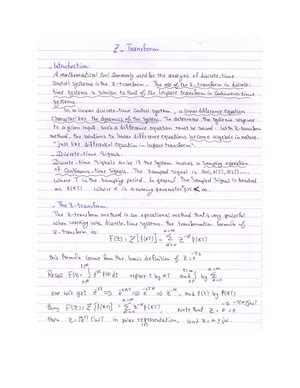 Z - Transform
- Introduction:
A mathematical tool commonly used for the analysis of discrete-time
control systems is the Z-transform. The role of the Z-transform in discrete-
time systems is similar to that of the Laplace transform in Continuous-time
systems.
In a linear discrete-time control system, a linear difference equation
characterizes the dynamics of the system. To determine the system's response
to a given input, such a difference equation must be solved. With Z-transform
method, the solutions to linear difference equations become algebraic in nature.
"just like differential equation in laplace transform".
- Discrete-time Signals:
Discrete-time signals arise if the system involves a sampling operation
of continuous-time signals. The sampled signal is x(0), x(T), x(2T), ....
where T is the sampling period. In general the sampled signal is denoted
as x(KT). where K is
- The Z-transform:
The Z-transform method is an operational method that is very powerful
when working with discrete-time systems. the transformation formula of
Z-transform is:
F(Z) = Z[f(KT)] = Σ Z^-K f(KT)
this formula came from the basic definition of Z =
Recall F(s) = ∫ f(t) dt replace t by KT and ∫ by Σ
one will get
thus F(Z) = Z[f(KT)] = Σ Z^-K f(KT), Note that Z =
then in polar representation, and